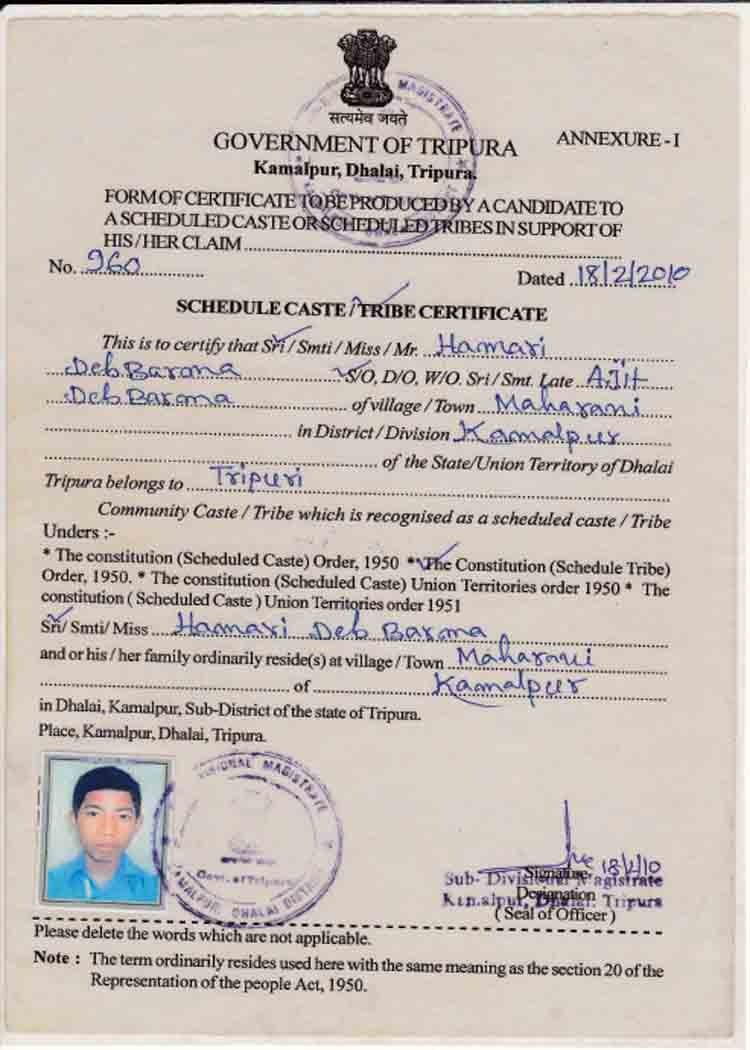 सत्यमेव जयते
GOVERNMENT OF TRIPURA
ANNEXURE - I
Kamalpur, Dhalai, Tripura.
FORM OF CERTIFICATE TO BE PRODUCED BY A CANDIDATE TO
A SCHEDULED CASTE OR SCHEDULED TRIBES IN SUPPORT OF
HIS / HER CLAIM
No. 960 Dated 18/2/2010
SCHEDULE CASTE / TRIBE CERTIFICATE
This is to certify that Sri / Smti / Miss / Mr. Hamari
Deb Barma S/O, D/O, W/O. Sri / Smt. Late Ajit
Deb Barma of village / Town Maharani
in District / Division Kamalpur
of the State/Union Territory of Dhalai
Tripura belongs to Tripuri
Community Caste / Tribe which is recognised as a scheduled caste / Tribe
Unders :-
* The constitution (Scheduled Caste) Order, 1950 * The Constitution (Schedule Tribe)
Order, 1950. * The constitution (Scheduled Caste) Union Territories order 1950 * The
constitution ( Scheduled Caste ) Union Territories order 1951
Sri/ Smti/ Miss Hamari Deb Barma
and or his / her family ordinarily reside(s) at village / Town Maharani
of Kamalpur
in Dhalai, Kamalpur, Sub-District of the state of Tripura.
Place, Kamalpur, Dhalai, Tripura.
MAGISTRATE
Govt. of Tripura
KAMALPUR, DHALAI DISTRICT
18/2/10
Signature,
Sub-Divisional Magistrate
Designation
Kamalpur, Dhalai. Tripura
( Seal of Officer )
Please delete the words which are not applicable.
Note : The term ordinarily resides used here with the same meaning as the section 20 of the
Representation of the people Act, 1950.